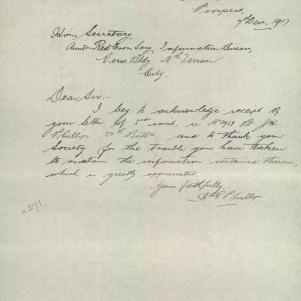 Prospect,
7th Dec, 1917
Hon. Secretary,
Aust. Red Cross Soc, Information Bureau,
Vero Bldg Nth Terrace
City
Dear Sir:-
I beg to acknowledge receipt of
your letter of 3rd inst, re No 2918 Pte J.H.
Phillips 50th Battn and to thank your
Society for the trouble you have taken
to ascertain the information contained therein,
which is greatly appreciated
Yours faithfully,
Phillips
4271